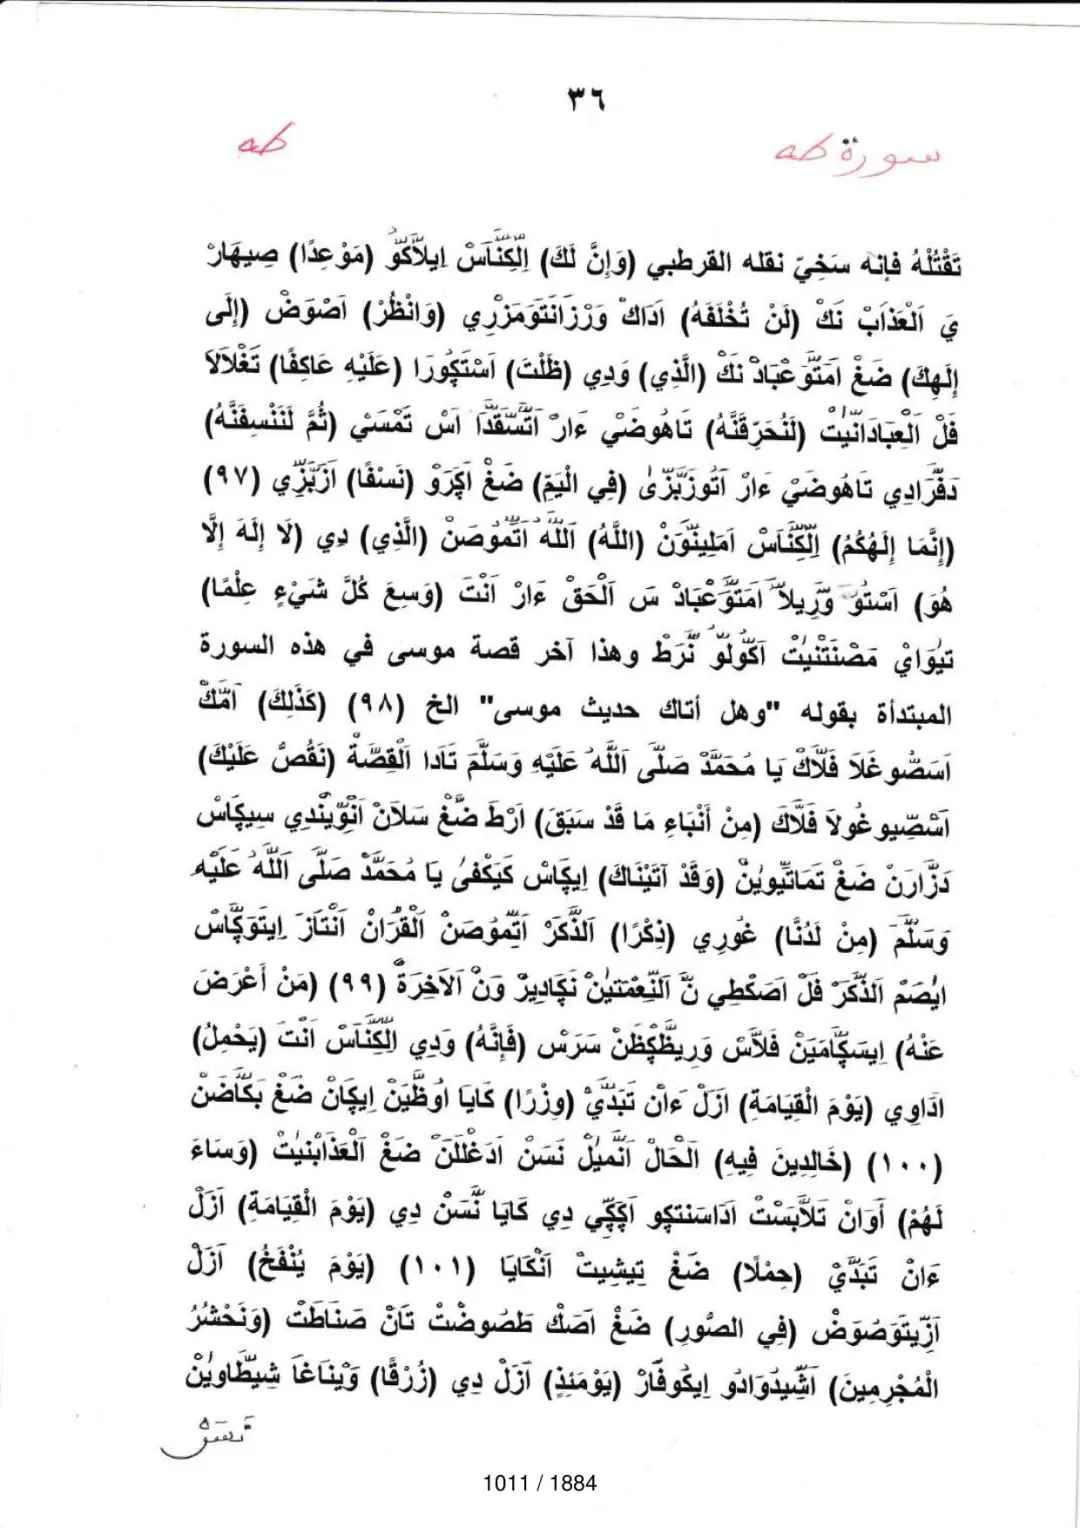 ٣٦
سورة طه
طه
تَقْتُلْهُ فإنه سَخِيّ نقله القرطبي (وَإِنَّ لَكَ) اِلْكِنَّاسْ اِيلَاكَوُّ (مَوْعِدًا) صِيهَارْ
يَ اَلْعَذَابْ نَكْ (لَنْ تُخْلَفَهُ) اَدَاكْ وَرْزَانَتَومَزْرِي (وَانْظُرْ) اَصْوَضْ (إِلَى
إِلَهِكَ) ضَغْ اَمَتَّوعْبَادْ نَكْ (الَّذِي) وَدِي (ظَلْتَ) اَسْتَكِورَا (عَلَيْهِ عَاكِفًا) تَغْلَالَا
فَلْ اَلْعِبَادَانَّيتْ (لَنُحَرِّقَنَّهُ) تَاهُوضَيْ ءَارْ اَتَّسَقَدَّا اَسْ تَمْسَيْ (ثُمَّ لَنَنْسِفَنَّهُ)
دَفَّرَادِي تَاهُوضَيْ ءَارْ اَتَوزَبَّزَىْ (فِي الْيَمِّ) ضَغْ اَكَرَوْ (نَسْفًا) اَزَبَّزِي (٩٧)
(إِنَّمَا إِلَهُكُمُ) اِلْكِنَّاسْ اَمَلِينَوَنْ (اللَّهُ) اَللَّهْ اَتَّمُوصَنْ (الَّذِي) دِي (لَا إِلَهَ إِلَّا
هُوَ) اَسْتَوْ وَرِيلَا اَمَتَّوعْبَادْ سَ اَلْحَقْ ءَارْ اَنْتَ (وَسِعَ كُلَّ شَيْءٍ عِلْمًا)
تِيوَايْ مَصْنَتْنَيتْ اَكُولَوْ نَّرَطْ وهذا آخر قصة موسى في هذه السورة
المبتدأة بقوله "وهل أتاك حديث موسى" الخ (٩٨) (كَذَلِكَ) اَمَّكْ
اَسَصُّوغَلَا فَلَّاكْ يَا مُحَمَّدْ صَلَّى اَللَّهُ عَلَيْهِ وَسَلَّمَ تَادَا اَلْقِصَّةْ (نَقُصُّ عَلَيْكَ)
اَسْصِّيوغُولَا فَلَّاكَ (مِنْ أَنْبَاءِ مَا قَدْ سَبَقَ) اَرْطَ ضَغْ سَلَانْ اَنْوِينْدِي سِيكَاسْ
دَزَّارَنْ ضَغْ تَمَاتِّيوِينْ (وَقَدْ آتَيْنَاكَ) اِيكَاسْ كَيَكْفَىْ يَا مُحَمَّدْ صَلَّى اَللَّهُ عَلَيْهِ
وَسَلَّمَ (مِنْ لَدُنَّا) غُورِي (ذِكْرًا) اَلذَّكَرْ اَتَّمُوصَنْ اَلْقُرَانْ اَنْتَازَ اِيتَوَكَّاسْ
اَيُصَمْ اَلذَّكَرْ فَلْ اَصَكْطِي نَّ اَلنِّعْمَتِينْ نَكَادِيرْ وَنْ اَلَاخِرَةْ (٩٩) (مَنْ أَعْرَضَ
عَنْهُ) اِيسَكَّامَيَنْ فَلَّاسْ وَرِيظَّكِظَنْ سَرَسْ (فَإِنَّهُ) وَدِي اِلْكِنَّاسْ اَنْتَ (يَحْمِلُ)
اَدَاوِي (يَوْمَ الْقِيَامَةِ) اَزَلْ ءَانْ تَبَدَّيْ (وِزْرًا) كَايَا اَوظَّيَنْ اِيكَانْ ضَغْ بَكَّاضَنْ
(١٠٠) (خَالِدِينَ فِيهِ) اَلْحَالْ اَنَّمِيلْ نَسَنْ اَدَغْلَلَنْ ضَغْ اَلْعَذَابْنِيتْ (وَسَاءَ
لَهُمْ) أَوَانْ تَلَابَسْتْ اَدَاسَنتَكِو اَكَكِّي دِي كَايَا نَّسَنْ دِي (يَوْمَ الْقِيَامَةِ) اَزَلْ
ءَانْ تَبَدَّيْ (حِمْلًا) ضَغْ تِيشِيتْ اَنْكَايَا (١٠١) (يَوْمَ يُنْفَخُ) اَزَلْ
اَزِّيتَوَصُوَضْ (فِي الصُّورِ) ضَغْ اَصَكْ طَصُوضْتْ تَانْ صَنَاطَتْ (وَنَحْشُرُ
الْمُجْرِمِينَ) اَشِّيدَوَادَو اِيكُوفَارْ (يَوْمَئِذٍ) اَزَلْ دِي (زُرْقًا) وَيْنَاغَا شِيطَّاوِينْ
1011 / 1884